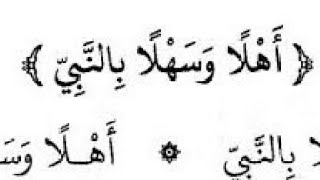 ﴿ أَهْلًا وَسَهْلًا بِالنَّبِيِّ ﴾
بِالنَّبِيِّ ۞ أَهْلًا